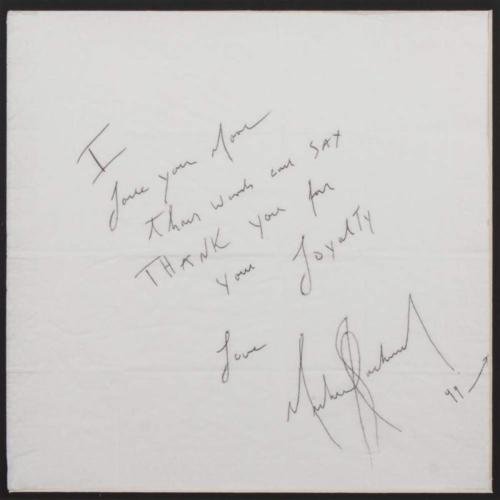 I
Love you More
than words can SAY
THANK you for
your Loyalty
Love
Michael Jackson
99